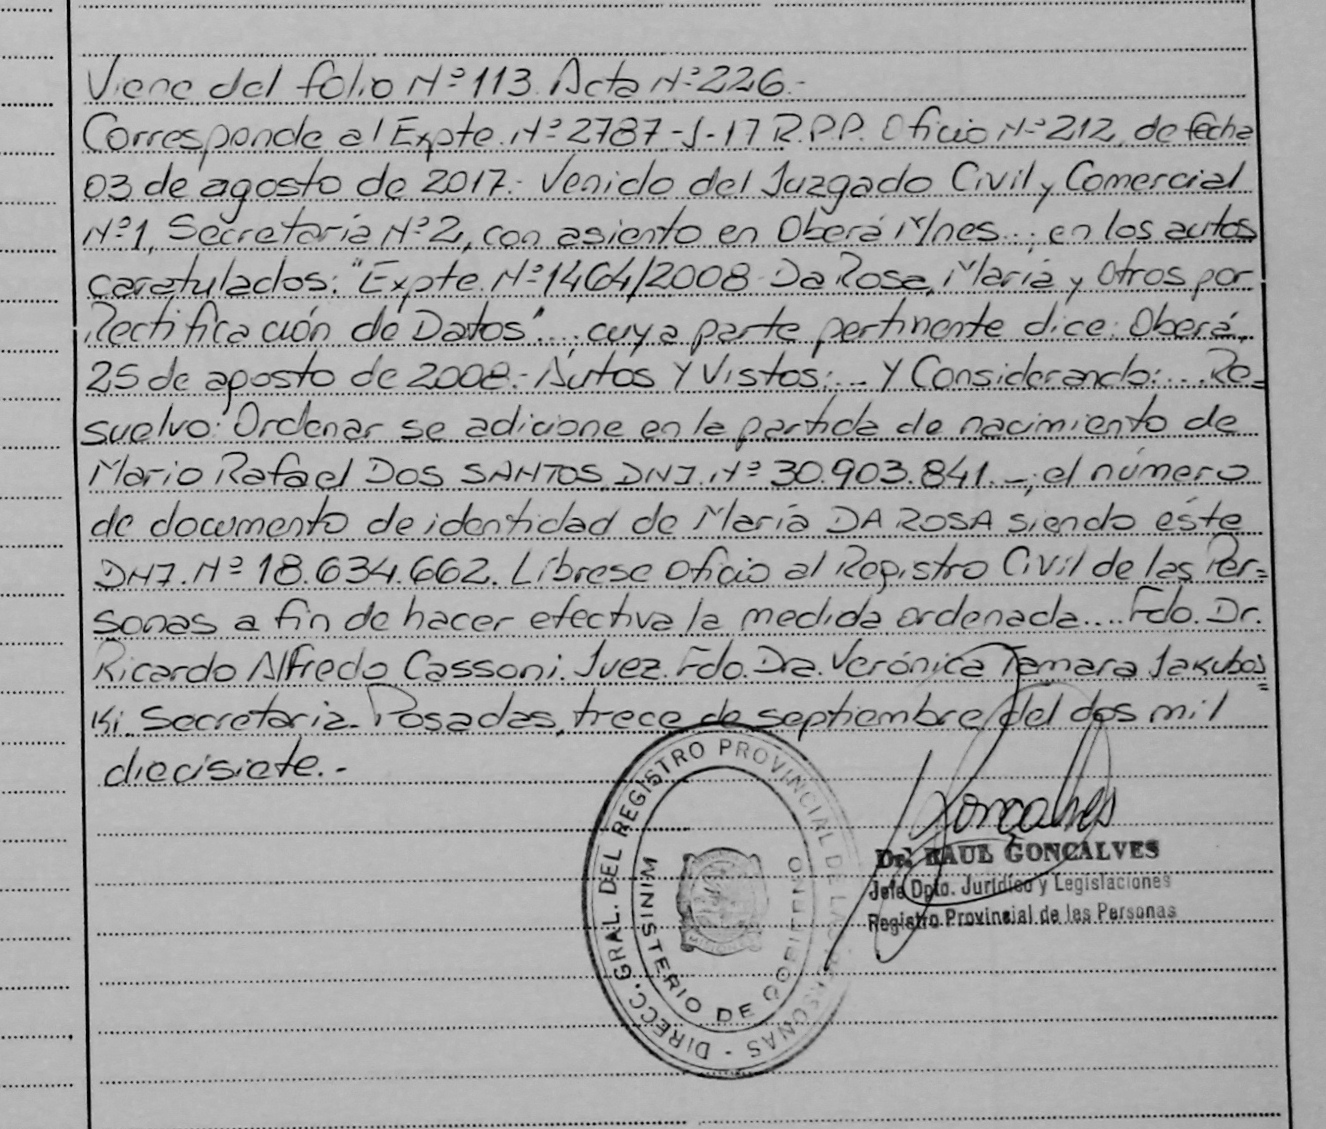 Viene del folio Nº 113 Acta Nº 226.-
Corresponde al Expte. Nº 2787-J-17 R.P.P. Oficio Nº 212, de fecha
03 de agosto de 2017.- Venido del Juzgado Civil y Comercial
Nº 1, Secretaría Nº 2, con asiento en Oberá Mnes...; en los autos
caratulados: "Expte. Nº 1464/2008 Da Rosa, María y Otros por
Rectificación de Datos"...; cuya parte pertinente dice: Oberá,
25 de agosto de 2008.- Autos Y Vistos:... Y Considerando:... Re=
suelvo: Ordenar se adicione en la partida de nacimiento de
Mario Rafael DOS SANTOS, DNI. Nº 30.903.841.-, el número
de documento de identidad de María DA ROSA siendo éste
DNI. Nº 18.634.662. Líbrese Oficio al Registro Civil de las Per=
sonas a fin de hacer efectiva la medida ordenada.... Fdo. Dr.
Ricardo Alfredo Cassoni. Juez. Fdo. Dra. Verónica Tamara Jakubos=
ki. Secretaria. Posadas, trece de septiembre del dos mil
diecisiete.-
DIRECC. GRAL. DEL REGISTRO PROVINCIAL DE LAS PERSONAS -
MINISTERIO DE GOBIERNO
Goncalves
Dr. RAUL GONCALVES
Jefe Dpto. Jurídico y Legislaciones
Registro Provincial de las Personas